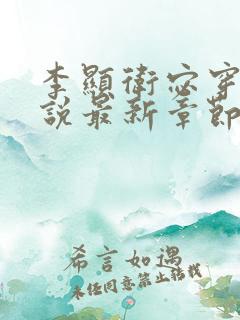 李顯衛宓穿
說最新章節
希言如遇
未经同意禁止转载